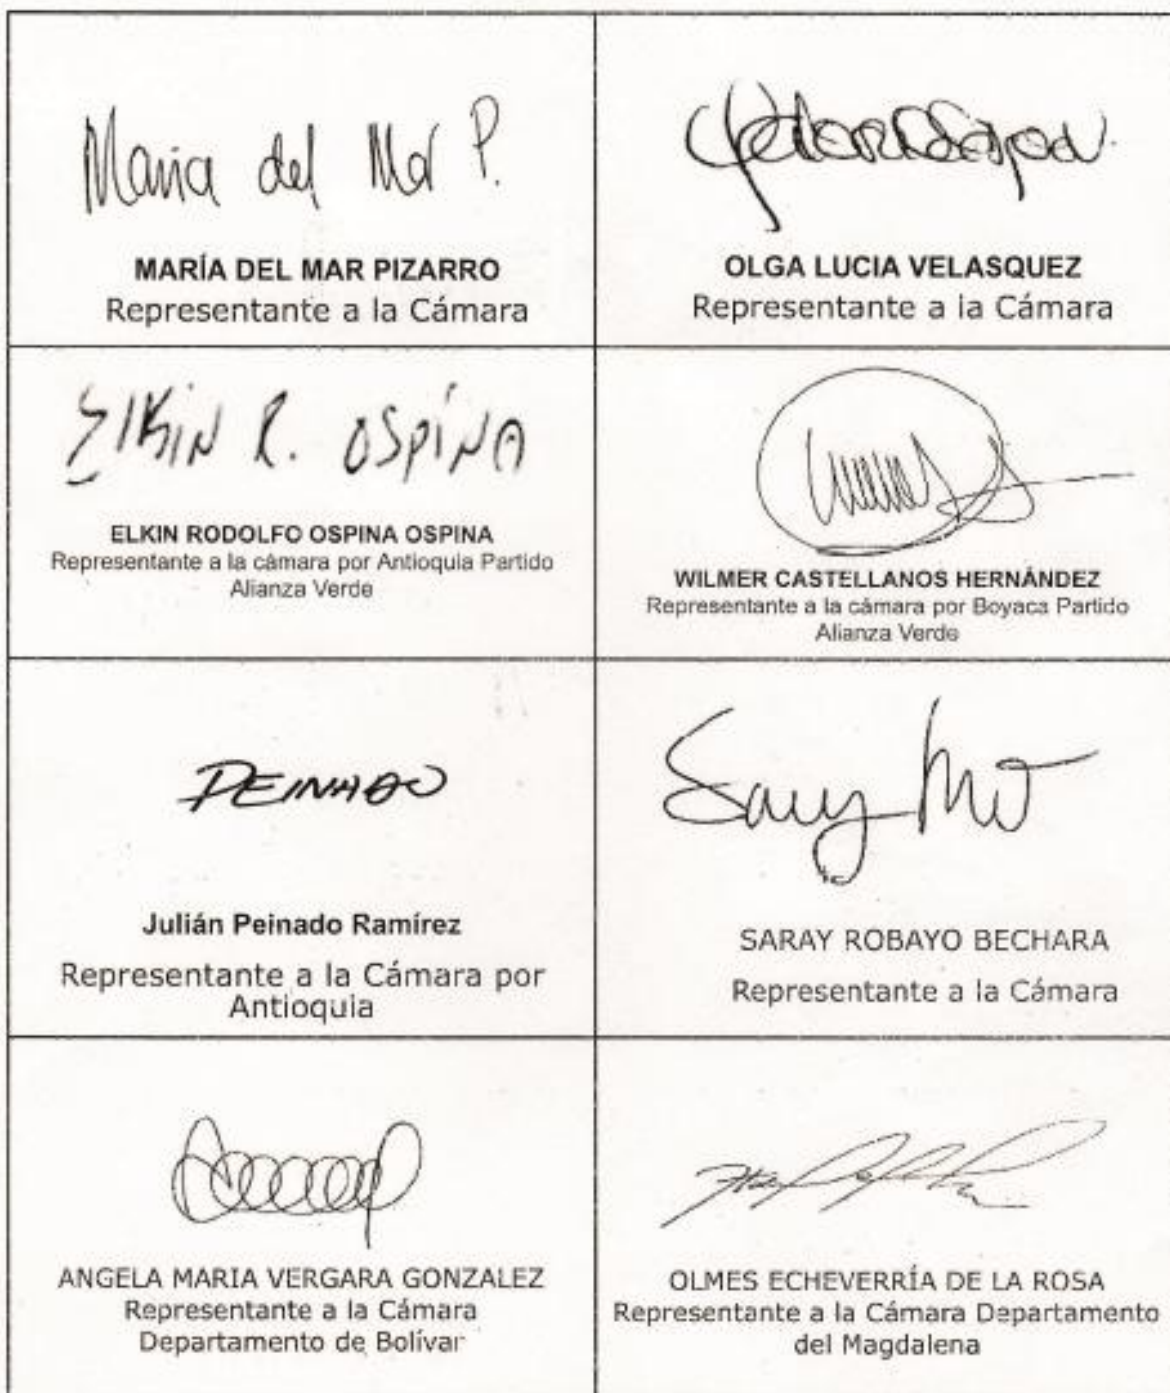 Maria del Mar P.
MARÍA DEL MAR PIZARRO
Representante a la Cámara
OLGA LUCIA VELASQUEZ
Representante a la Cámara
ELKIN R. OSPINA
ELKIN RODOLFO OSPINA OSPINA
Representante a la cámara por Antioquia Partido
Alianza Verde
WILMER CASTELLANOS HERNÁNDEZ
Representante a la cámara por Boyaca Partido
Alianza Verde
PEINADO
Julián Peinado Ramírez
Representante a la Cámara por
Antioquia
SARAY ROBAYO BECHARA
Representante a la Cámara
ANGELA MARIA VERGARA GONZALEZ
Representante a la Cámara
Departamento de Bolívar
OLMES ECHEVERRÍA DE LA ROSA
Representante a la Cámara Departamento
del Magdalena